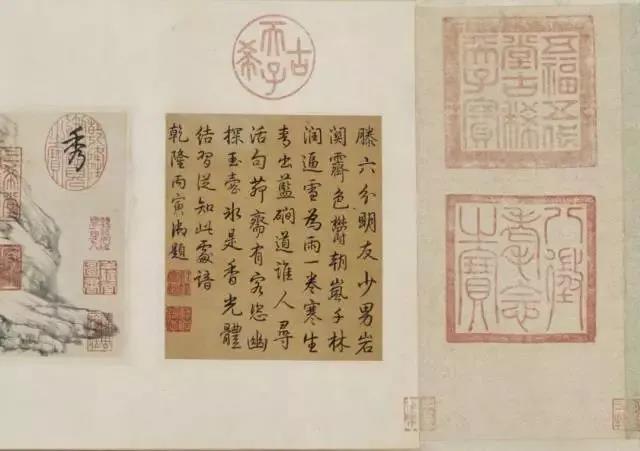 五福五代
堂古稀
天子寶
八徵
耄念
之寶
古希天子
滕六分明友少男岩
闕霽色欝朝嵐千林
润逼雪為雨一卷寒生
青出藍磵道誰人尋
活句茆齋有客恣幽
探玉壺冰是香光體
结習從知此處諳
乾隆丙寅御題
秀